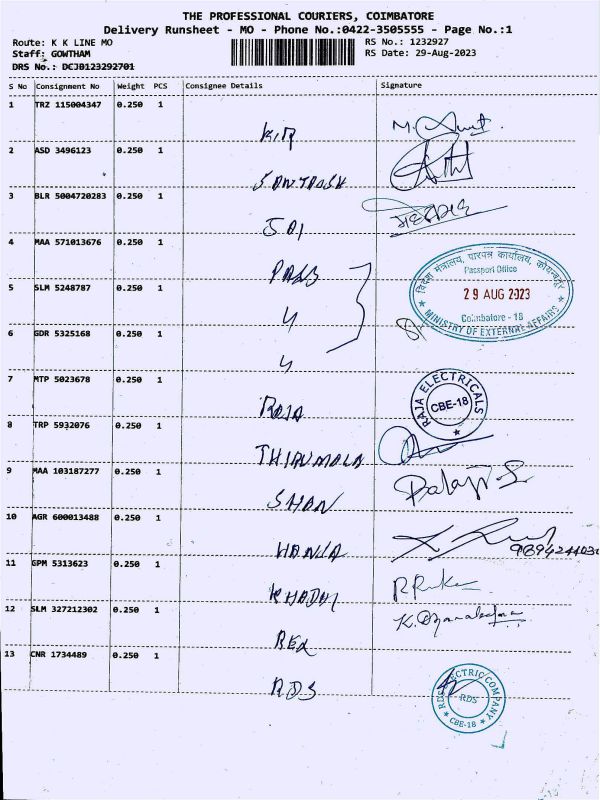 THE PROFESSIONAL COURIERS, COIMBATORE
Delivery Runsheet - MO - Phone No.:0422-3505555 - Page No.:1
Route: K K LINE MO
RS No.: 1232927
Staff: GOWTHAM
RS Date: 29-Aug-2023
DRS No.: DCJ0123292701
S No Consignment No Weight PCS Consignee Details Signature
1 TRZ 115004347 0.250 1
2 ASD 3496123 0.250 1
SANTHOSH
3 BLR 5004720283 0.250 1
JAI
4 MAA 571013676 0.250 1
PASS
विदेश मंत्रालय, पारपत्र कार्यालय, कोयम्बटूर
Passport Office
5 SLM 5248787 0.250 1
29 AUG 2023
Coimbatore - 18
MINISTRY OF EXTERNAL AFFAIRS
6 GDR 5325168 0.250 1
7 MTP 5023678 0.250 1
RAJA
RAJA ELECTRICALS
CBE-18
8 TRP 5932076 0.250 1
THIRUMALA
9 MAA 103187277 0.250 1
SHAN
Balaji S
10 AGR 600013488 0.250 1
11 GPM 5313623 0.250 1
12 SLM 327212302 0.250 1
REX
13 CNR 1734489 0.250 1
RDS
RDS ELECTRIC COMPANY
RDS
CBE-18